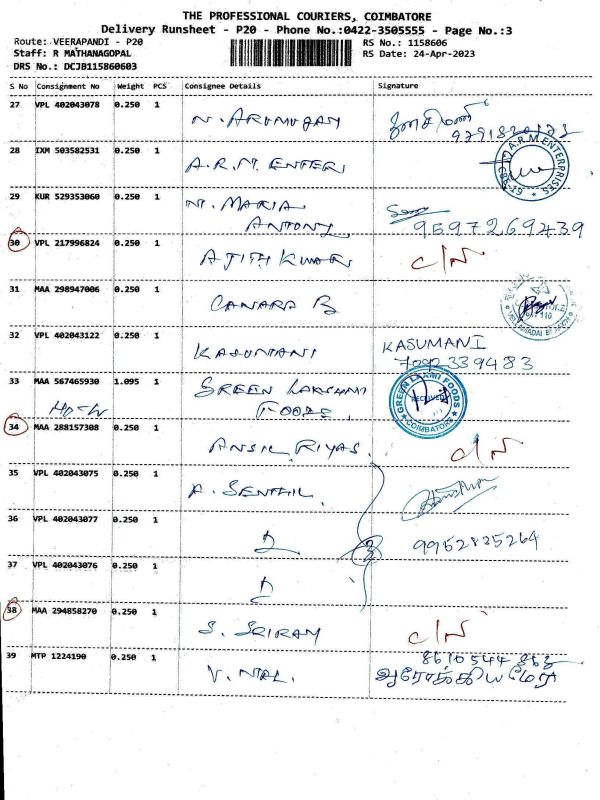 THE PROFESSIONAL COURIERS, COIMBATORE
Delivery Runsheet - P20 - Phone No.:0422-3505555 - Page No.:3
Route: VEERAPANDI - P20 RS No.: 1158606
Staff: R MATHANAGOPAL RS Date: 24-Apr-2023
DRS No.: DCJB115860603
S No Consignment No Weight PCS Consignee Details Signature
27 VPL 402043078 0.250 1
N. ARUMUGAM
28 IXM 503582531 0.250 1
A.R.M. ENTER A.R.M ENTERPRISES
29 KUR 529353060 0.250 1
M. MARIA
ANTONY 9597269439
30 VPL 217996824 0.250 1
AJITH KUMAR C/N
31 MAA 298947006 0.250 1
CANARA B
32 VPL 402043122 0.250 1
KASUMANI KASUMANI
7092339483
33 MAA 567465930 1.095 1
GREEN LAKSHMI
FOODS GREEN LAXMI FOODS RECEIVED COIMBATORE
34 MAA 288157308 0.250 1
ANSIL RIYAS. C/N
35 VPL 402043075 0.250 1
A. SENTHIL
36 VPL 402043077 0.250 1
9952825264
37 VPL 402043076 0.250 1
38 MAA 294858270 0.250 1
S. SRIRAM C/N
39 MTP 1224190 0.250 1
ஆரோக்கிய